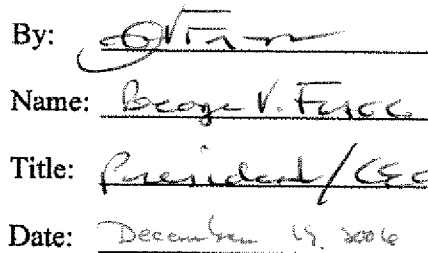 By:
Name: George V.
Title: President/CEO
Date: December 19, 2006